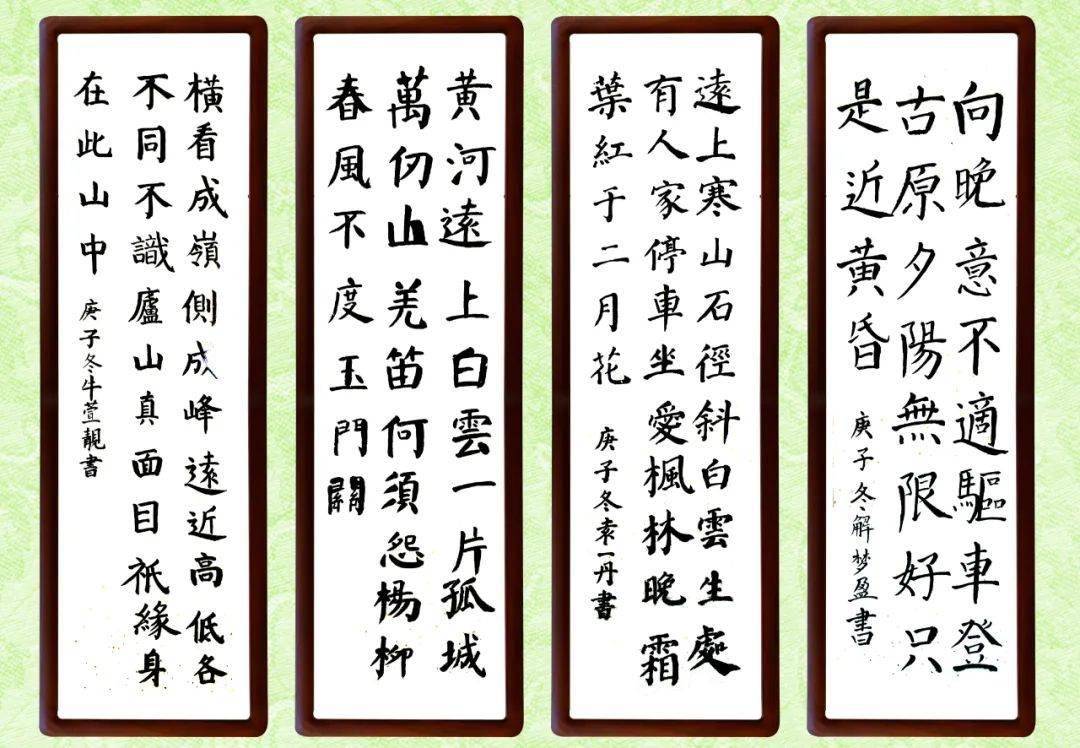 向晚意不適驅車登
古原夕陽無限好只
是近黄昏 庚子冬解梦盈書
遠上寒山石徑斜白雲生處
有人家停車坐愛楓林晚霜
葉紅于二月花 庚子冬袁一丹書
黄河遠上白雲一片孤城
萬仞山羌笛何須怨楊柳
春風不度玉門關
橫看成嶺側成峰遠近高低各
不同不識廬山真面目祇緣身
在此山中 庚子冬牛萱靚書